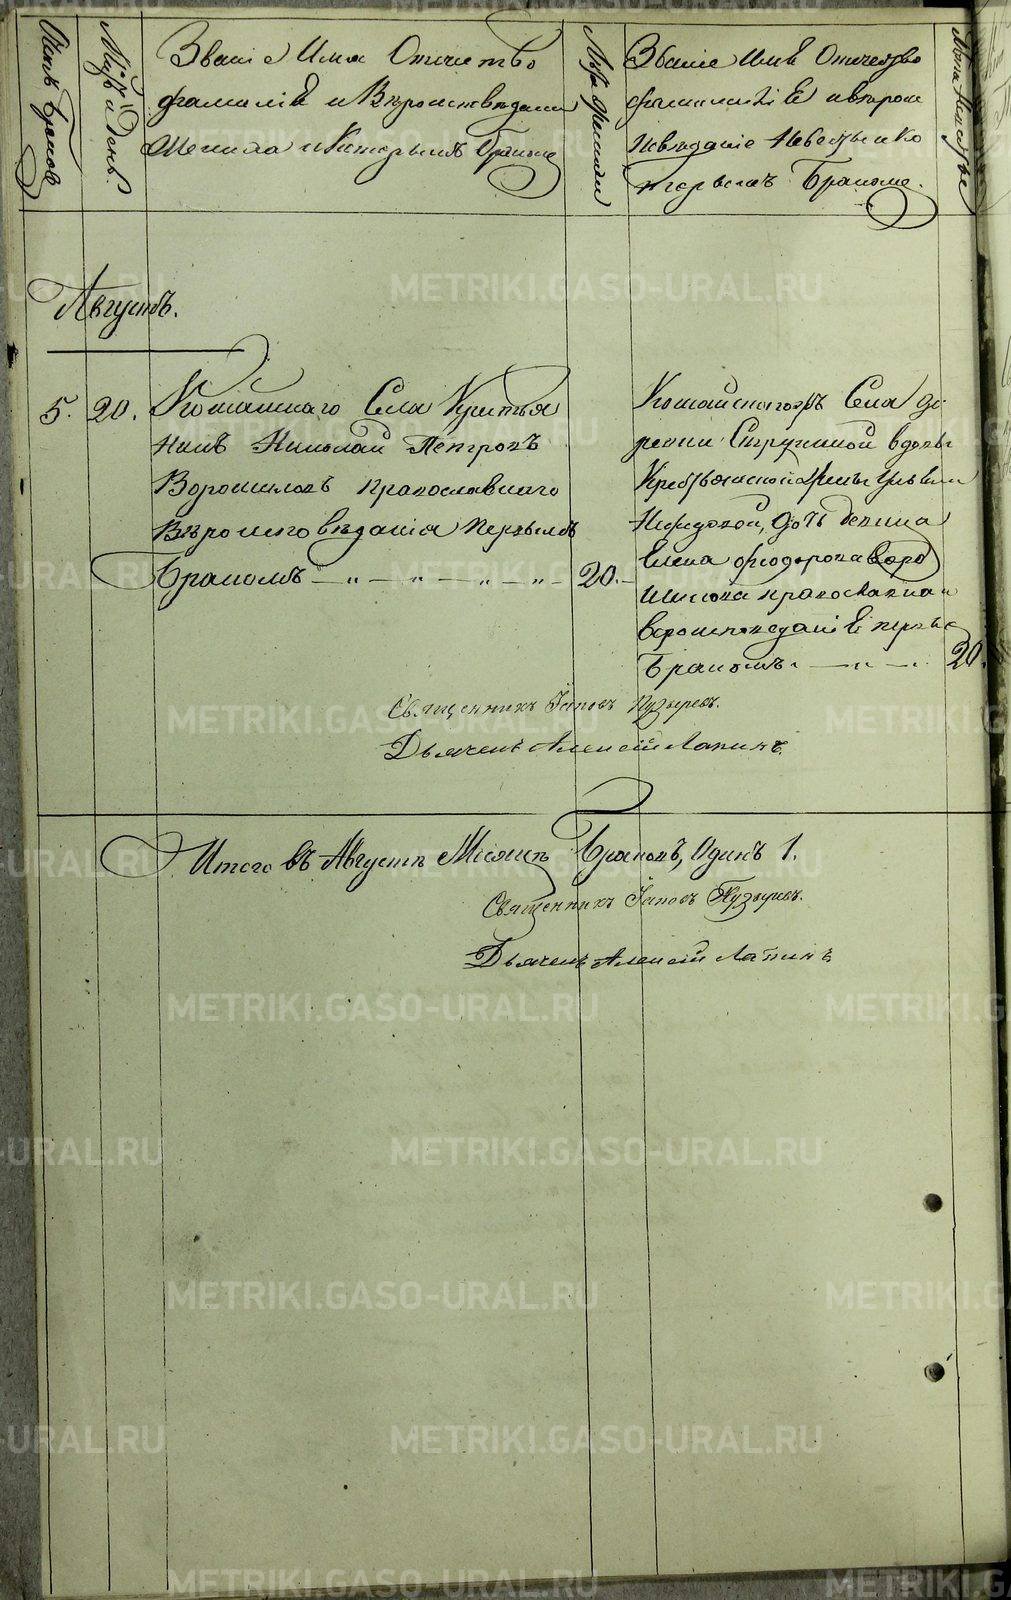 Счетъ браковъ
Мѣсяцъ и день.
Званіе Имя Отчество
фамилія и Вѣроисповѣданіе
Жениха и Которымъ Бракомъ
Лѣта Жениха
Званіе Имя Отчество
фамилія и вѣрои
исповѣданіе Невесты и Ко
торымъ Бракомъ.
Лѣта Невесты
Августъ.
5. 20.
Кошайскаго Села Крестья
нинъ Николай Петровъ
Ворошиловъ православнаго
Вѣроисповѣданія первымъ
Бракомъ — „ — „ — „ — „ — 20. —
Кошайскаго Села де
ревни вдовы
Крестьянской жены
дочь девица
Елена Феодорова Воро
шилова православнаго
вероисповеданія первым
Бракомъ. — „ — 20.
Священникъ Іаковъ Пузыревъ.
Дьячекъ Алексій Лапинъ.
Итого въ Августѣ Месяцѣ Браковъ, Одинъ 1.
Священникъ Іаковъ Пузыревъ.
Дьячекъ Алексій Лапинъ
METRIKI.GASO-URAL.RU